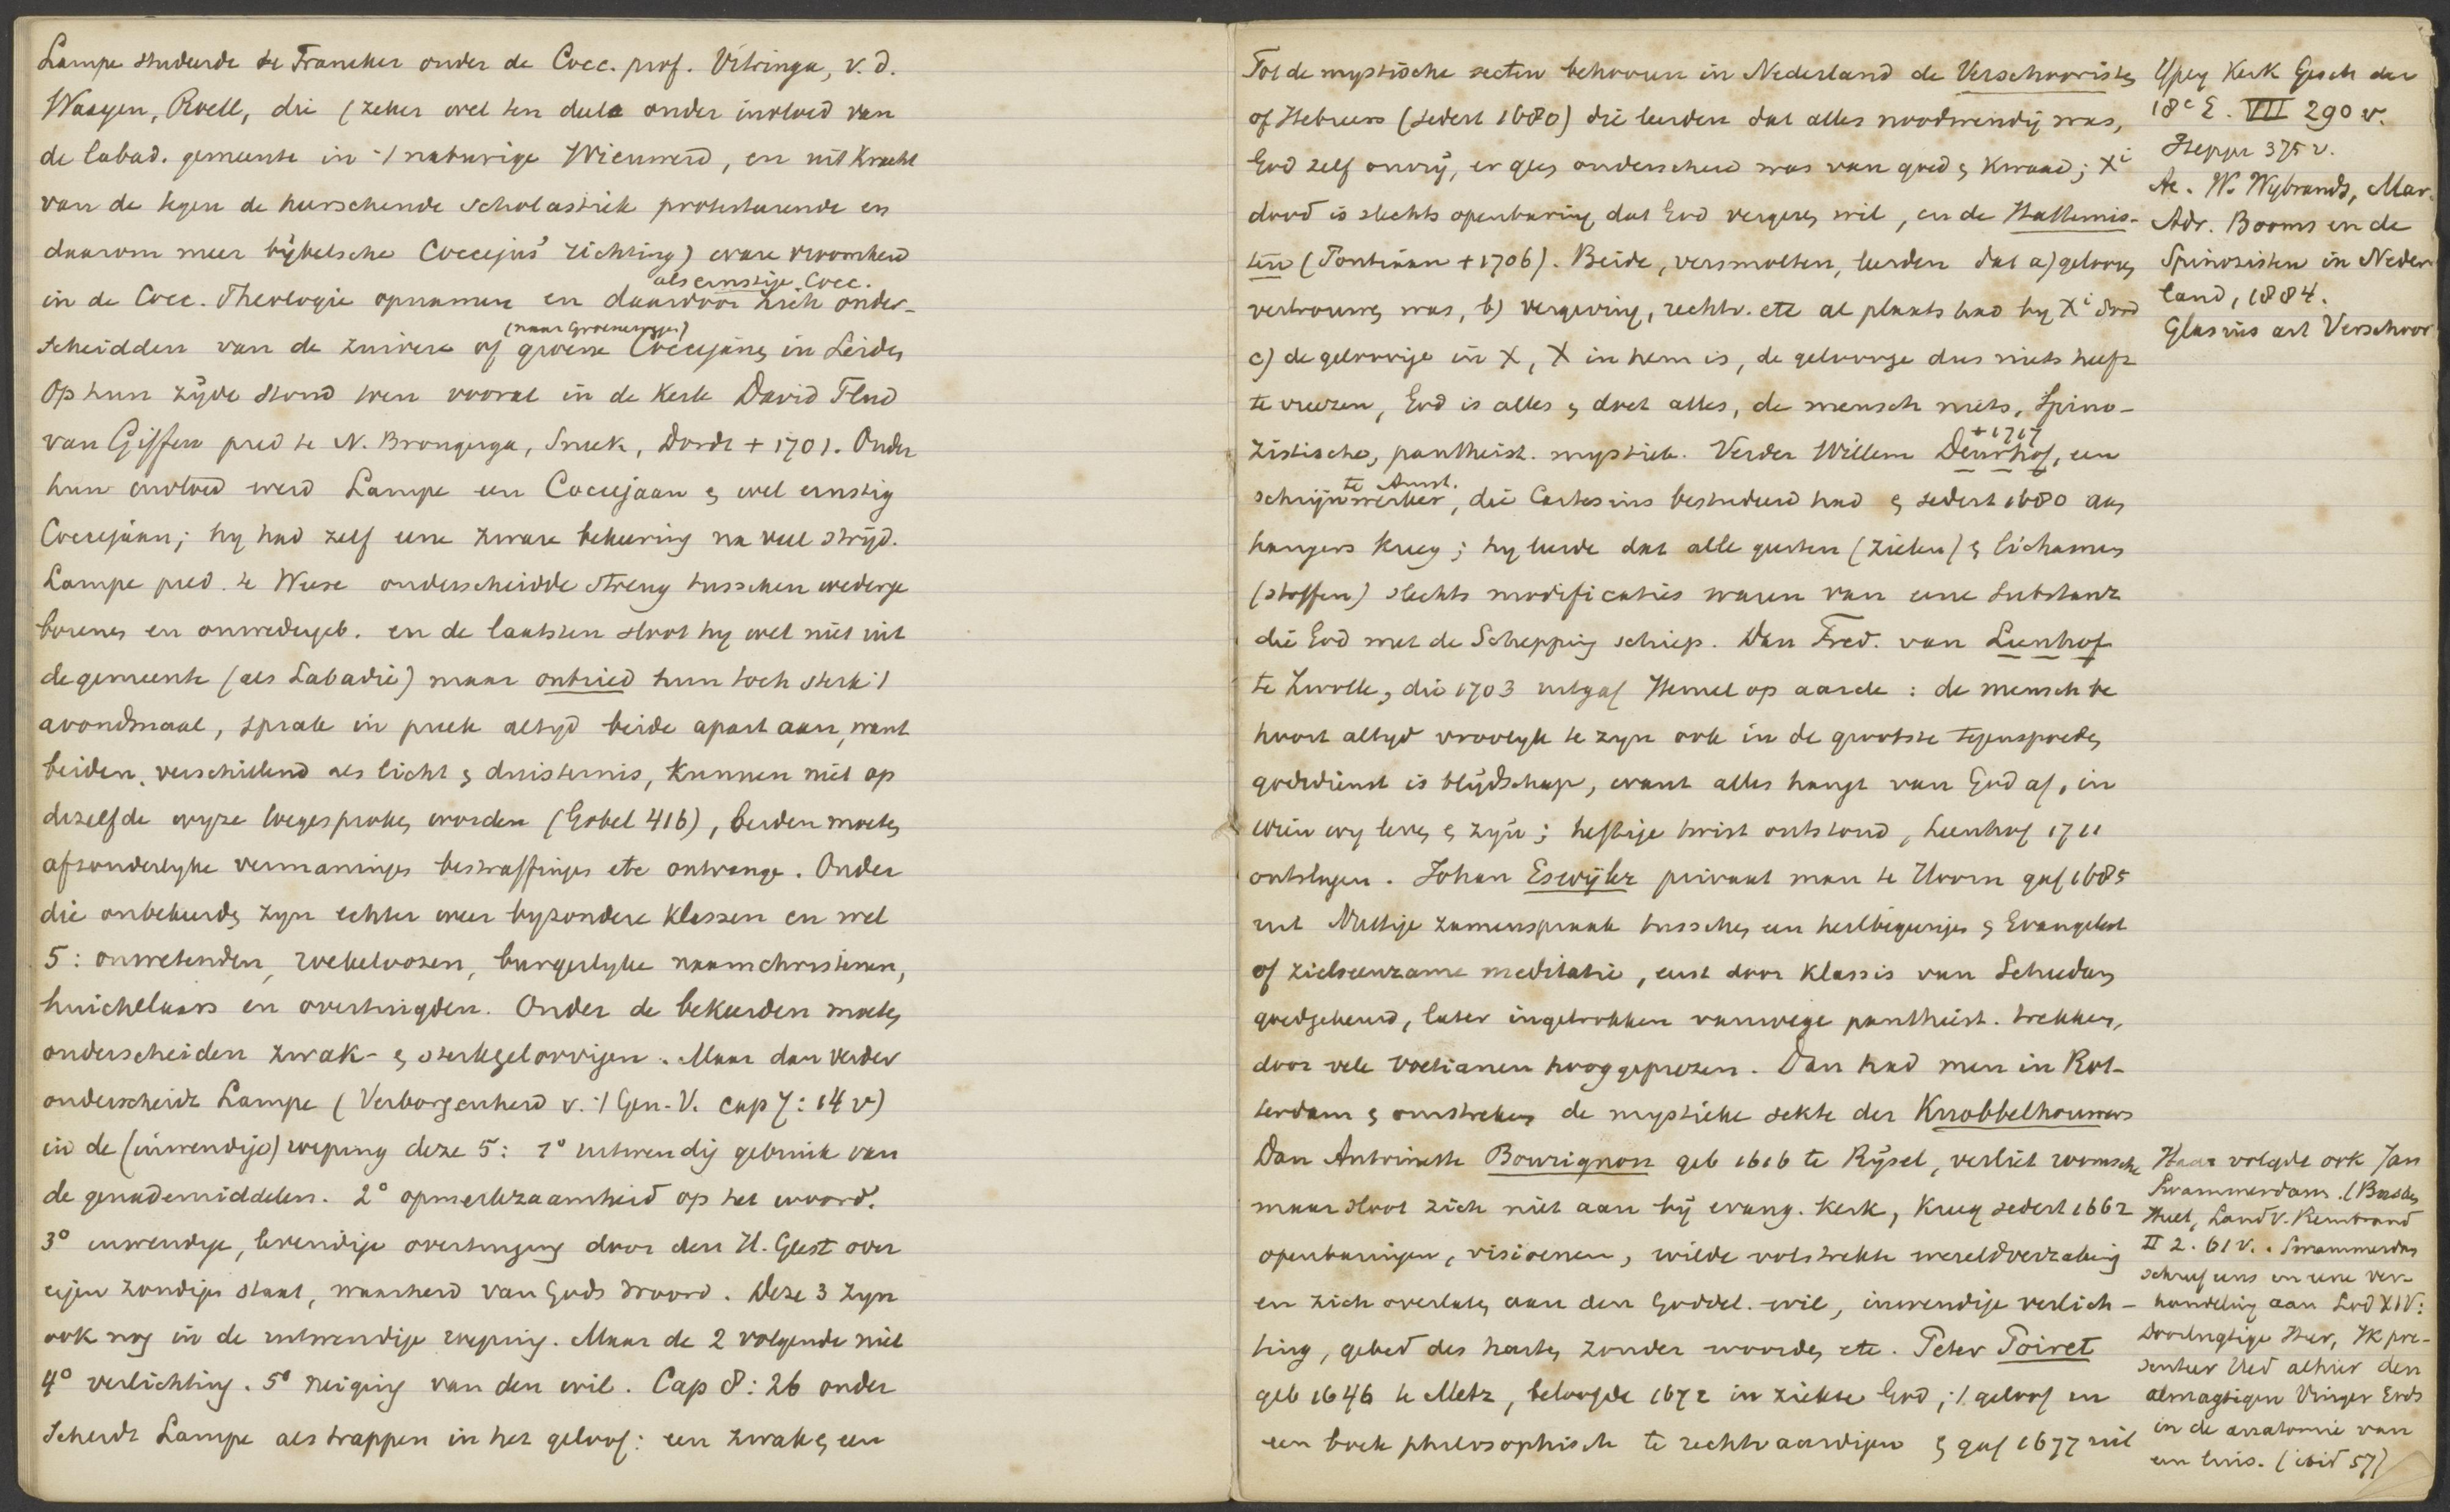 Lampe studeerde te Franeker onder de Cocc. prof. Vitringa, v. d.
Waeyen, Roell, die (zeker wel ten deele onder invloed van
de labad. gemeente in 't naburige Wieuwerd, en uit kracht
van de tegen de heerschende scholastiek protesteerende en
daarom meer bijbelsche Coccejus' richting) ware vroomheid
in de Cocc. Theologie opnamen en daardoor zich als ernstige Cocc. onder-
scheidden van de zuivere of groene (naar Groenewegen) Coccejanen in Leiden
Op hun zijde stond toen vooral in de kerk David Flud
van Giffen pred te N. Brongerga, Sneek, Dordt + 1701. Onder
hun invloed werd Lampe een Coccejaan & wel ernstig
Coccejaan; hy had zelf eene zware bekeering na veel strijd.
Lampe pred. te Weese onderscheidde streng tusschen wederge
borenen en onwedergeb. en de laatsten sloot hy wel niet uit
de gemeente (als Labadie) maar ontried hun toch sterk 't
avondmaal, sprak in preek altyd beide apart aan, want
beiden, verschillend als licht & duisternis, kunnen niet op
dezelfde wyze toegesproken worden (Gobel 416), beiden moeten
afzonderlyke vermaningen bestraffingen etc ontvange. Onder
die onbekeerden zyn echter weer byzondere klassen en wel
5: onwetenden, roekeloozen, burgerlyke naamchristenen,
huichelaars en overtuigden. Onder de bekeerden moeten
onderscheiden zwak- & sterkgeloovigen. Maar dan verder
onderscheidt Lampe (Verborgenheid v. 't Gen.-V. cap 7: 14 v)
in de (inwendige) roeping deze 5: 1° uitwendig gebruik van
de genademiddelen. 2° opmerkzaamheid op het woord.
3° inwendige, levendige overtuiging door den H. Geest over
eigen zondigen staat, waarheid van Gods woord. Deze 3 zyn
ook nog in de uitwendige roeping. Maar de 2 volgende niet
4° verlichting. 5° neiging van den wil. Cap 8: 26 onder
scheidt Lampe als trappen in het geloof: een zwak & een
Tot de mystische secten behooren in Nederland de Verschooristen
of Hebreers (sedert 1680) die leerden dat alles noodwendig was,
God zelf onvrij, er geen onderscheid was van goed & kwaad; Xi
dood is slechts openbaring dat God vergeven wil, en de Hattemis-
ten (Pontiaan + 1706). Beide, versmolten, leerden dat a) gelooven
vertrouwen was, b) vergeving, rechtv. etc al plaats had by Xi dood
c) de geloovige in X, X in hem is, de geloovige dus niets heeft
te vreezen, God is alles & doet alles, de mensch niets, Spino-
zistische, pantheist. mystiek. Verder Willem Deurhof + 1717, een
schrijnwerker te Amst., die Cartesius bestudeerd had & sedert 1680 aan
hangers kreeg; hy leerde dat alle geesten (zielen) & lichamen
(stoffen) slechts modificaties waren van eene substantz
die God met de Schepping schiep. Dan Fred. van Leenhof
te Zwolle, die 1703 uitgaf Hemel op aarde: de mensch be
hoort altyd vroolyk te zyn ook in de grootste tegenspoeden
godsdienst is blijdschap, want alles hangt van God af, in
wien wy leven & zyn; heftige twist ontstond, Leenhof 1711
ontslagen. Johan Eswijler privaat man te Hoorn gaf 1685
uit Nuttige zamenspraak tusschen een heilbegeerige & Evangelist
of zielseenzame meditatie, eerst door klassis van Schiedam
goedgekeurd, later ingetrokken vanwege pantheist. trekken,
door vele voetianen hooggeprezen. Dan had men in Rot-
terdam & omstreken de mystieke sekte der Knobbelhouwers
Dan Antoinette Bourignon geb 1616 te Rijsel, verliet roomsche
maar sloot zich niet aan bij evang. kerk, kreeg sedert 1662
openbaringen, visioenen, wilde volstrekte wereldverzaking
en zich overlaten aan den Goddel. wil, inwendige verlich-
ting, gebed des harten zonder woorden etc. Peter Poiret
geb 1646 te Metz, beloofde 1672 in ziekte God, 't geloof in
een boek philosophisch te rechtvaardigen & gaf 1677 uit
Ypey Kerk Gesch der
18e E. VII 290 v.
Heppe 375 v.
Ae. W. Wybrands, Mar.
Adr. Booms en de
Spinozisten in Neder-
land, 1884.
Glasius art Verschoor
Haar volgde ook Jan
Swammerdam. (Busken
Huet, Land v. Rembrand
II 2. 61 v. Swammerdam
schreef eens in eene ver-
handeling aan Lod XIV:
Doorlugtige Heer, Ik pre-
senteer Ued alhier den
almagtigen Vinger Gods
in de anatomie van
een luis. (ibid 57)